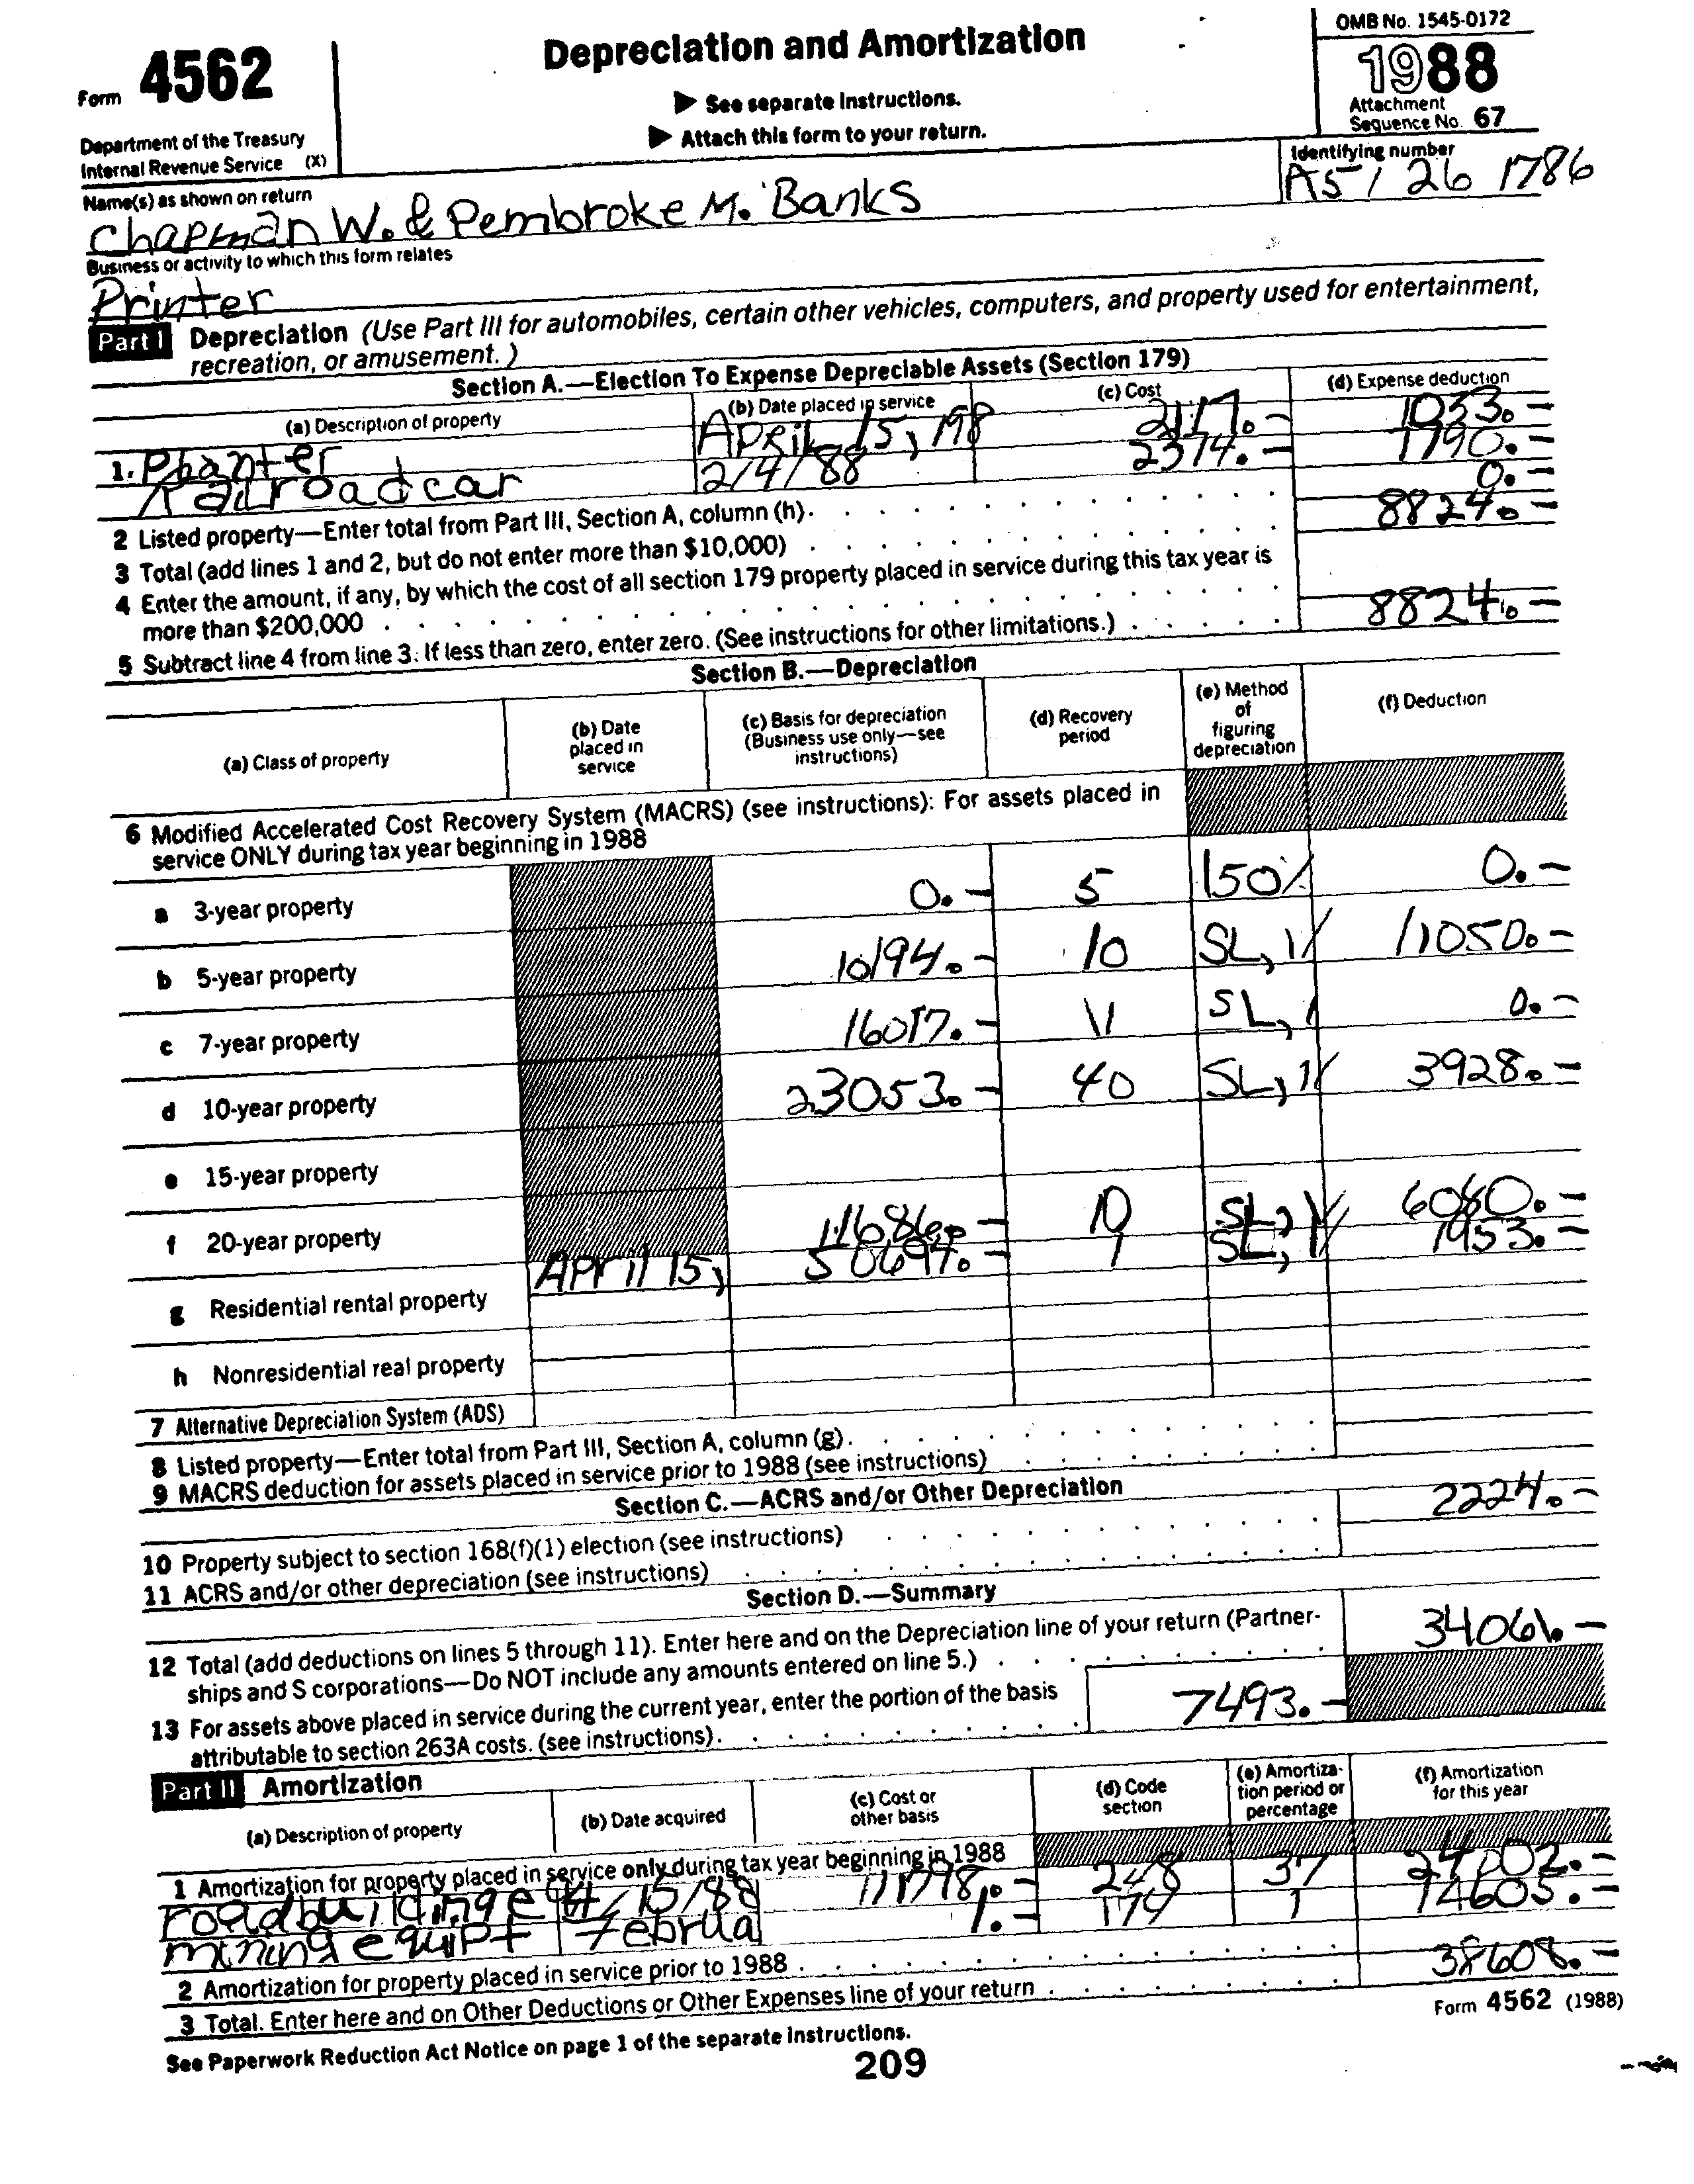 Form 4562
Department of the Treasury
Internal Revenue Service (X)
Depreciation and Amortization
▶ See separate Instructions.
▶ Attach this form to your return.
OMB No. 1545-0172
1988
Attachment
Sequence No. 67
Name(s) as shown on return
Chapman W. & Pembroke M. Banks
Identifying number
A51 26 1786
Business or activity to which this form relates
Printer
Part I Depreciation (Use Part III for automobiles, certain other vehicles, computers, and property used for entertainment,
recreation, or amusement.)
Section A.—Election To Expense Depreciable Assets (Section 179)
(a) Description of property (b) Date placed in service (c) Cost (d) Expense deduction
1. April 15, 198 2117.- 1033.-
Railroadcar 2/4/88 2374.- 1790.-
2 Listed property—Enter total from Part III, Section A, column (h). 0.-
3 Total (add lines 1 and 2, but do not enter more than $10,000) 8824.-
4 Enter the amount, if any, by which the cost of all section 179 property placed in service during this tax year is
more than $200,000
5 Subtract line 4 from line 3. If less than zero, enter zero. (See instructions for other limitations.) 8824.-
Section B.—Depreciation
(a) Class of property
(b) Date
placed in
service
(c) Basis for depreciation
(Business use only—see
instructions)
(d) Recovery
period
(e) Method
of
figuring
depreciation
(f) Deduction
6 Modified Accelerated Cost Recovery System (MACRS) (see instructions): For assets placed in
service ONLY during tax year beginning in 1988
a 3-year property 0.- 5 150% 0.-
b 5-year property 10194.- 10 SL, 11050.-
c 7-year property 16017.- 11 SL, 0.-
d 10-year property 23053.- 40 SL, 3928.-
e 15-year property
f 20-year property 11686.- SL, 6080.-
April 15, 50697.- SL, 1953.-
g Residential rental property
h Nonresidential real property
7 Alternative Depreciation System (ADS)
8 Listed property—Enter total from Part III, Section A, column (g).
9 MACRS deduction for assets placed in service prior to 1988 (see instructions)
Section C.—ACRS and/or Other Depreciation
10 Property subject to section 168(f)(1) election (see instructions) 2224.-
11 ACRS and/or other depreciation (see instructions)
Section D.—Summary
12 Total (add deductions on lines 5 through 11). Enter here and on the Depreciation line of your return (Partner-
ships and S corporations—Do NOT include any amounts entered on line 5.) 34061.-
13 For assets above placed in service during the current year, enter the portion of the basis
attributable to section 263A costs. (see instructions). 7493.-
Part II Amortization
(a) Description of property
(b) Date acquired
(c) Cost or
other basis
(d) Code
section
(e) Amortiza-
tion period or
percentage
(f) Amortization
for this year
1 Amortization for property placed in service only during tax year beginning in 1988
roadbuilding e 4/15/88 248 37
mining equipt Februa 1.- 179 1 14605.-
2 Amortization for property placed in service prior to 1988
3 Total. Enter here and on Other Deductions or Other Expenses line of your return 38608.-
See Paperwork Reduction Act Notice on page 1 of the separate Instructions.
Form 4562 (1988)
209